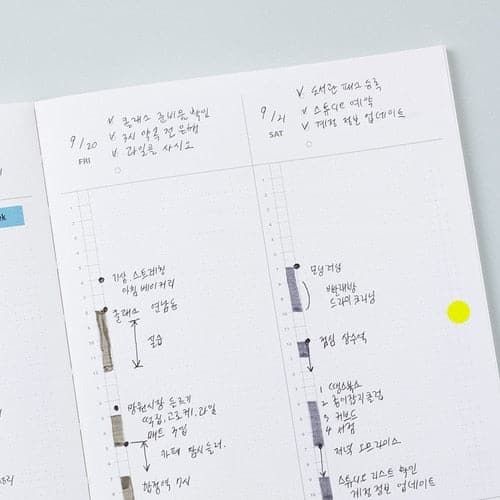 9/20
FRI
v 클래스 준비물 확인
v 3시 약속 전 은행
v 과일들 사시오
9/21
SAT
v 도서관 패스 등록
v 스튜디오 예약
v 계정 정보 업데이트
기상. 스트레칭
아침 베이커리
클래스 연남동
실습
망원시장 들르기
떡집, 고로케, 과일
매트 구입
카페 잠시 들러.
합정역 7시
모닝커피
빠래방
드라이크리닝
점심 상수역
1 땡스북스
2 종이잡지클럽
3 커보드
4 서점
저녁
스튜디오 리스트 확인
계정 정보 업데이트